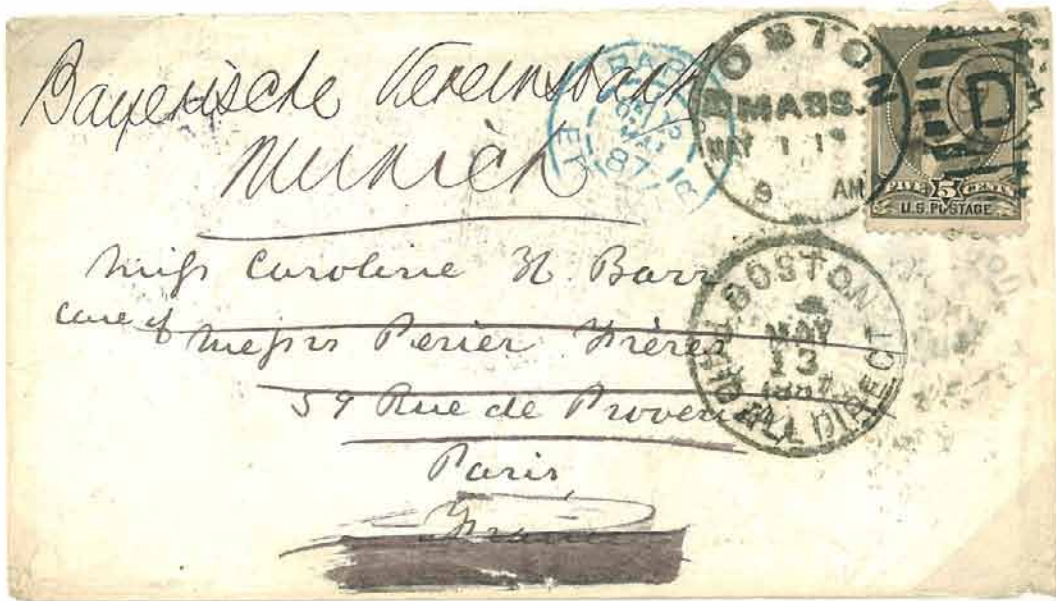 Bayerische Vereinsbank
Munich
Miss Caroline H. Barr
care of Messrs Perier Frères
59 Rue de Provence
Paris
France
BOSTON
MASS.
MAY 11
9 AM
D
FIVE 5 CENTS
U.S. POSTAGE
PARIS
ETR
87
BOSTON
MAY
13
DIRECT